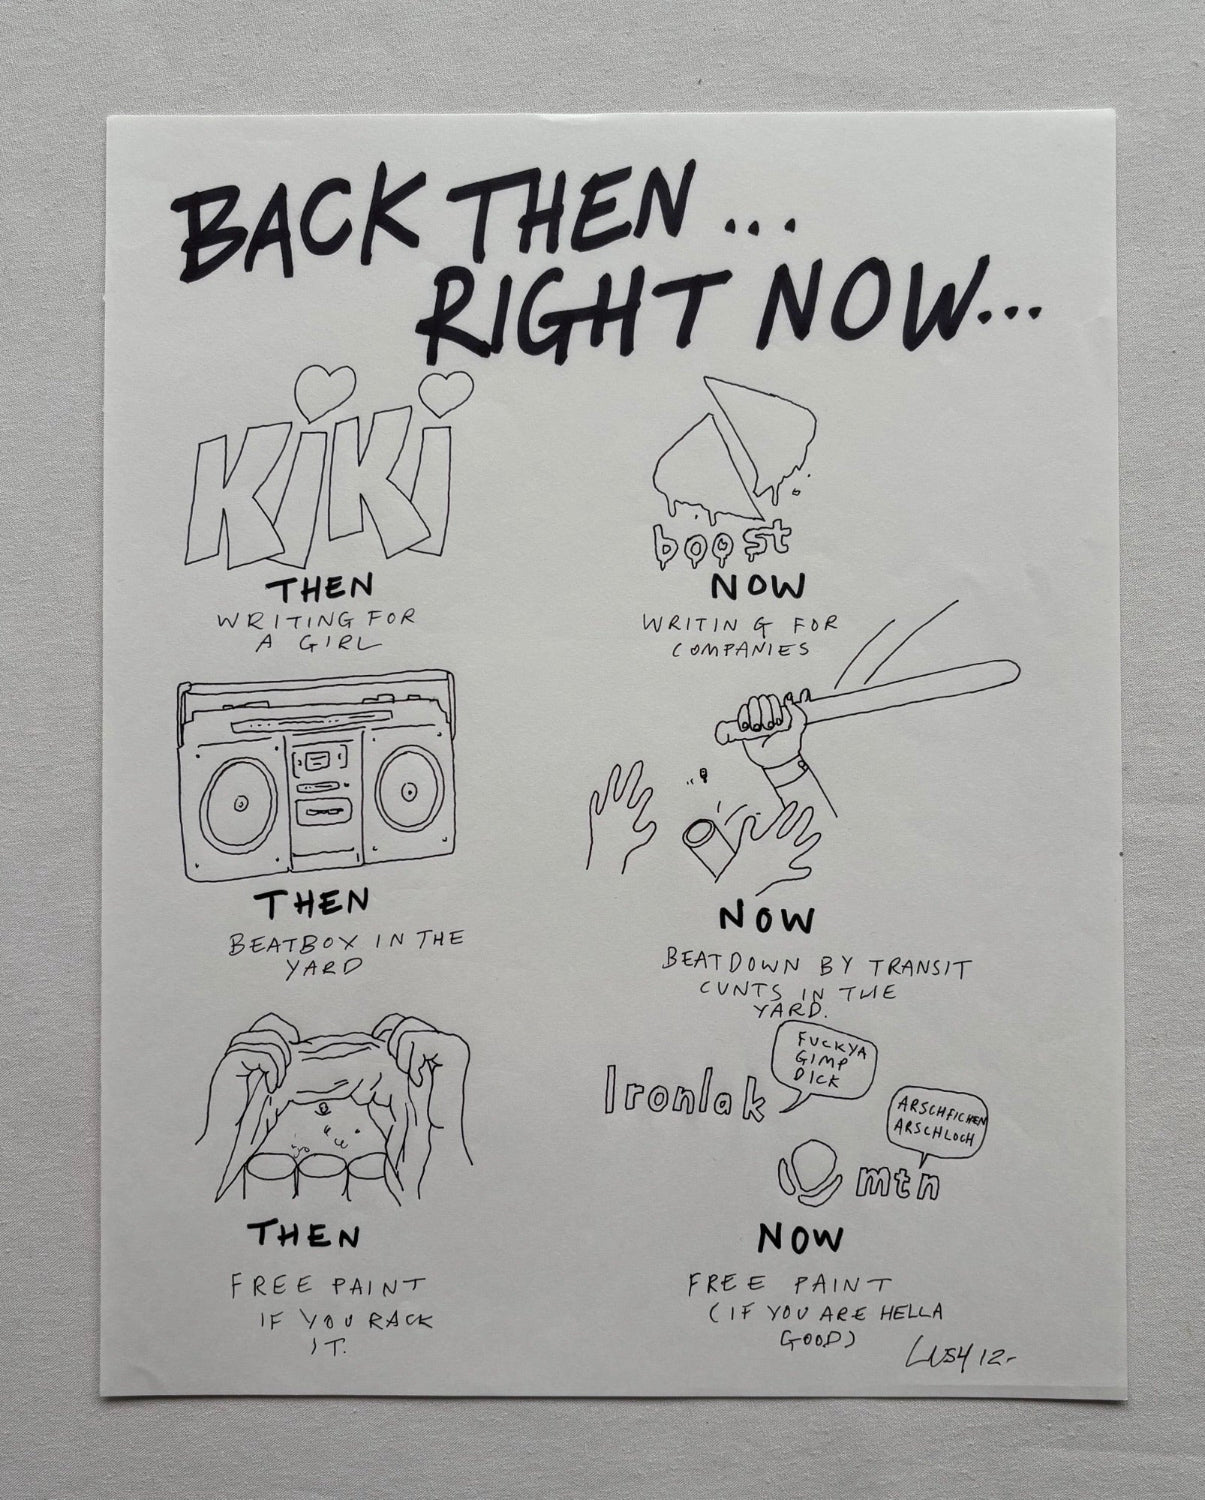 BACK THEN...
RIGHT NOW...
KiKi
THEN
WRITING FOR
A GIRL
boost
NOW
WRITING FOR
COMPANIES
THEN
BEATBOX IN THE
YARD
NOW
BEATDOWN BY TRANSIT
CUNTS IN THE
YARD.
THEN
FREE PAINT
IF YOU RACK
IT.
Ironlak
FUCKYA
GIMP
DICK
ARSCHFICHEN
ARSCHLOCH
mtn
NOW
FREE PAINT
(IF YOU ARE HELLA
GOOD)
LUSY 12-